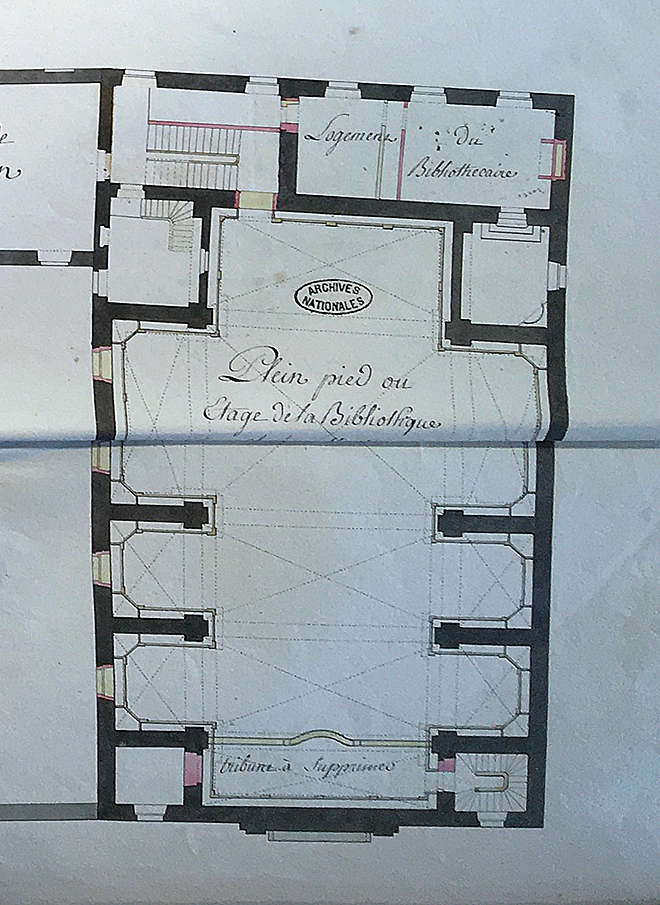 Logement du
Bibliothecaire
ARCHIVES
NATIONALES
Plein pied ou
Etage de la Bibliothèque
tribune à Supprimer